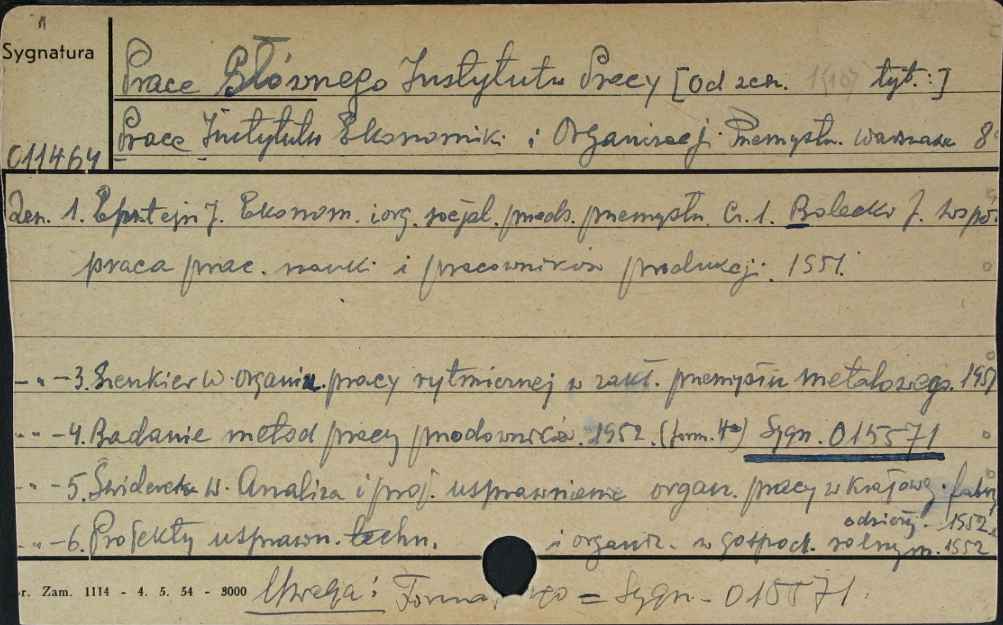 Sygnatura
Prace Głównego Instytutu Pracy [Od zesz. tyt.:]
Prace Instytutu Ekonomiki i Organizacji Przemysłu. Warszawa 8
011464
Zesz. 1. Epsztejn J. Ekonom. i org. socjal. przeds. przemysłu. Cz. 1. Balecki J. Współ-
praca prac. nauki i pracowników produkcji. 1951.
— „ — 3. Szenkier W. organiz. pracy rytmicznej w zakł. przemysłu metalowego. 1951
- „ - -4. Badanie metod pracy przodowników. 1952. (form. 4o) Sygn. 015571
- „ - -5. W. Analiza i proj. usprawnienia organ. pracy w krajowej. fabryk
odzież. 1952.
- „ -6. Projekty usprawn. techn. i organiz. w gospod. rolnym. 1952
r. Zam. 1114 - 4. 5. 54 - 3000 Uwaga: = Sygn. - 015571.